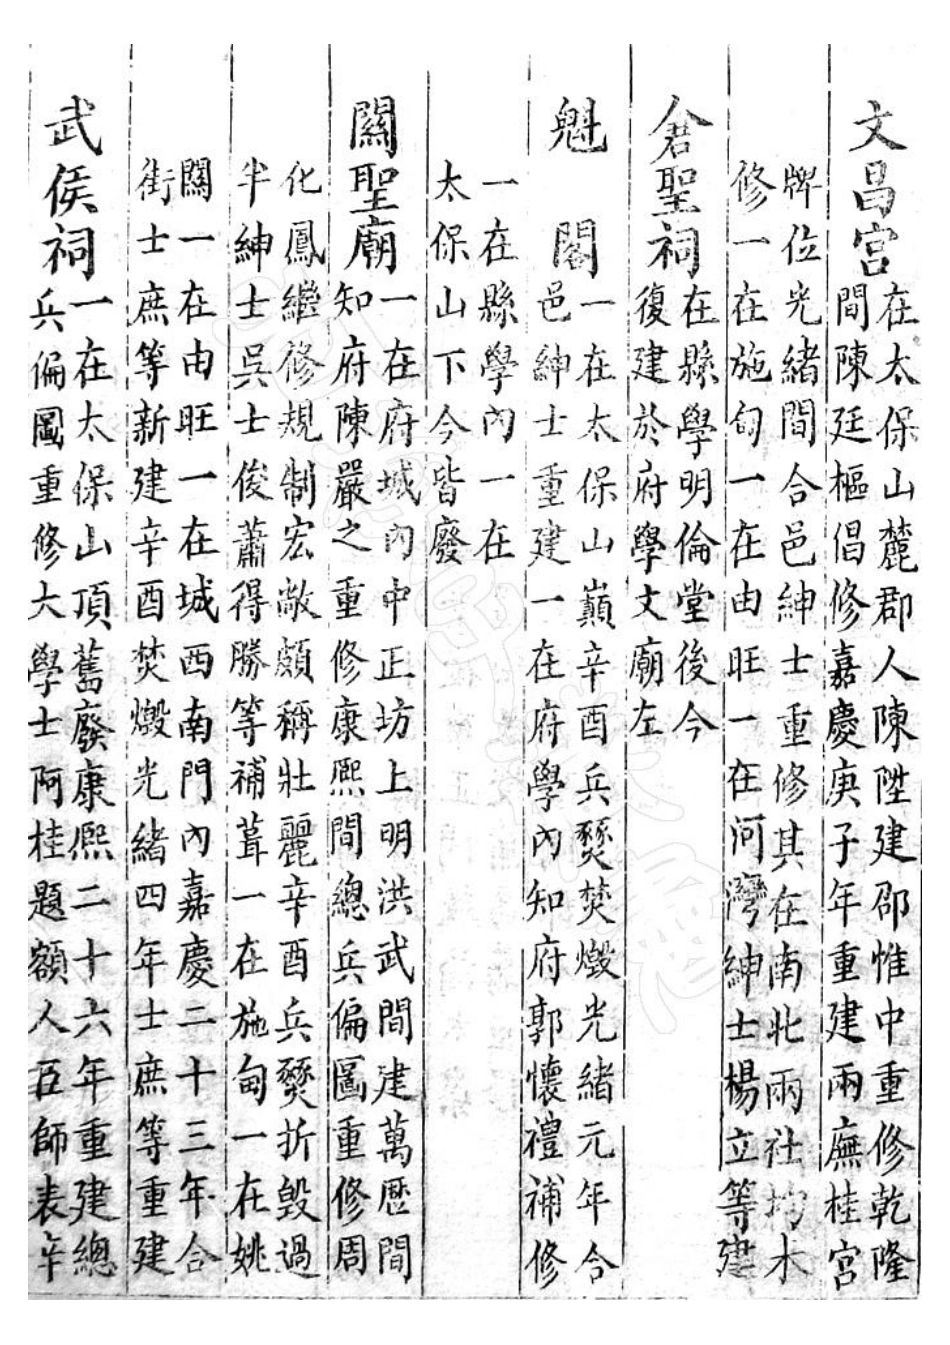 文昌宮在太保山麓郡人陳陞建邵惟中重修乾隆
間陳廷樞倡修嘉慶庚子年重建兩廡桂宮
牌位光緒間合邑紳士重修其在南北兩社均木
修一在施甸一在由旺一在河灣紳士楊立等建
倉聖祠在縣學明倫堂後今
復建於府學文廟左
魁閣一在太保山巔辛酉兵燹焚燬光緒元年合
邑紳士重建一在府學內知府郭懷禮補修
一在縣學內一在
太保山下今皆廢
關聖廟一在府城內中正坊上明洪武間建萬歷間
知府陳嚴之重修康熙間總兵偏圖重修周
化鳳繼修規制宏敞頗稱壯麗辛酉兵燹折毀過
半紳士吳士俊蕭得勝等補葺一在施甸一在姚
關一在由旺一在城西南門內嘉慶二十三年合
街士庶等新建辛酉焚燬光緒四年士庶等重建
武侯祠一在太保山頂舊廢康熙二十六年重建總
兵偏圖重修大學士阿桂題額人臣師表辛